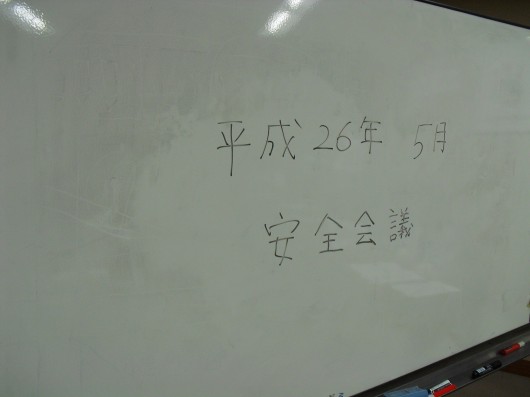 平成26年 5月
安全会議